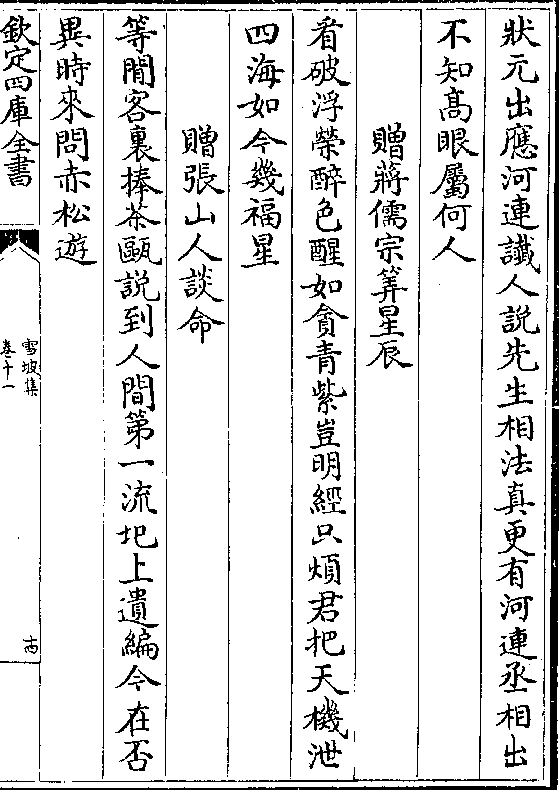 狀元出應河連讖人說先生相法真更有河連丞相出
不知髙眼屬何人
贈蔣儒宗筭星辰
看破浮榮醉色醒如貪青紫豈明經只煩君把天機泄
四海如今幾福星
贈張山人談命
等閒客裏捧茶甌説到人間第一流圯上遺編今在否
異時來問赤松遊
欽定四庫全書
雪坡集
卷十一
十四